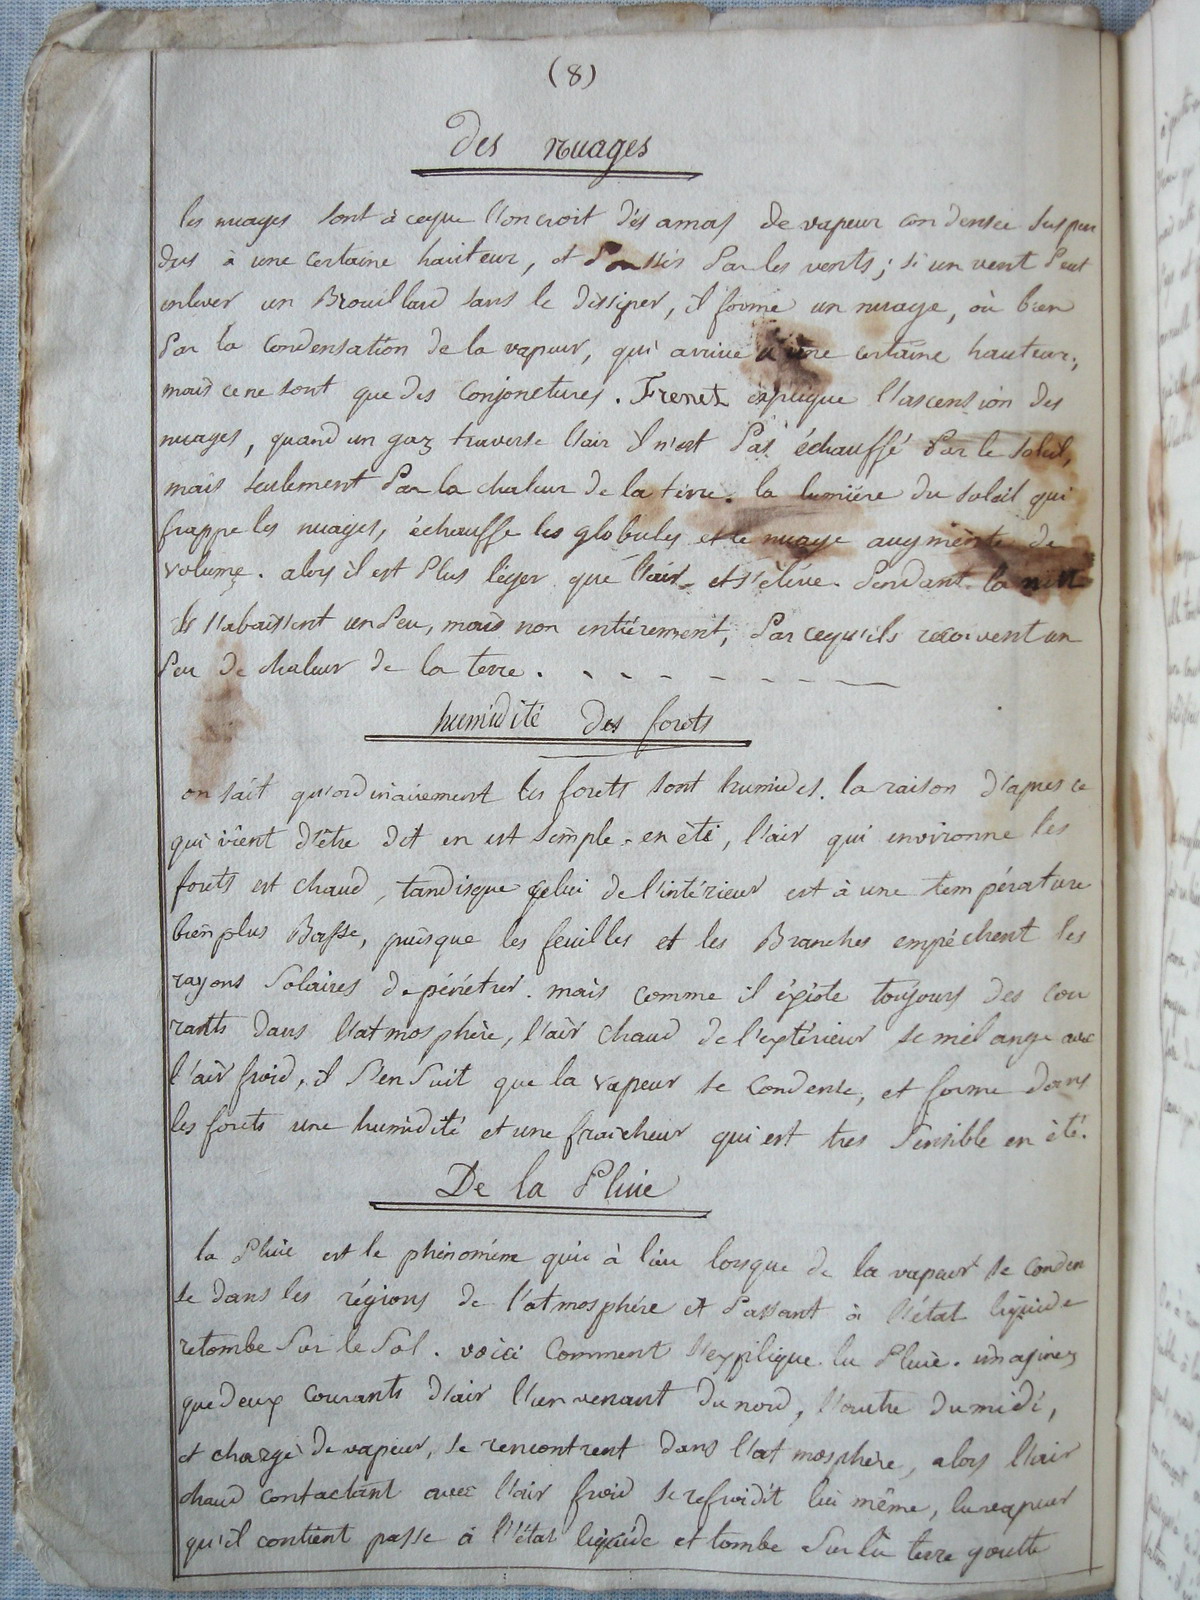 (8)
Des nuages
les nuages sont à ceque l'on croit dès amas de vapeur condensée suspen
dus à une certaine hauteur, et Poussés Par les vents; si un vent Peut
enlever un Brouillard sans le dissiper, il forme un nuage, où bien
Par la Condensation de la vapeur, qui arrive à une certaine hauteur;
mais cene sont que des Conjonctures. Frenet explique l'ascension des
nuages, quand un gaz traverse l'air il n'est Pas échauffé Par le soleil,
mais seulement Par la chaleur de la terre. la lumière du soleil qui
frappe les nuages, échauffe les globules et le nuage augmente de
volume. alors il est Plus léger que l'air et s'élève. Pendant la nuit
ils s'abaissent un Peu, mais non entièrement, Parcequ'ils reçoivent un
Peu de chaleur de la terre.
humidité des forêts
on sait qu'ordinairement les forêts sont humides. la raison d'après ce
qui vient d'être dit en est simple. en été, l'air qui environne les
forêts est chaud, tandisque celui de l'intérieur est à une température
bien plus Basse, puisque les feuilles et les Branches empêchent les
rayons Solaires de pénétrer. mais comme il éxiste toujours des cou
rants dans l'atmosphère, l'air chaud de l'extérieur se mélange avec
l'air froid, il s'en suit que la vapeur se Condense, et forme dans
les forêts une humidité et une fraîcheur qui est tres Sensible en été.
De la Pluie
la Pluie est le phénomène qui à lieu lorsque de la vapeur se conden
se dans les régions de l'atmosphère et Passant à l'état liquide
retombe Sur le Sol. voici Comment s'explique la Pluie. imaginez
que deux Courants d'air l'un venant du nord, l'autre du midi,
et chargé de vapeur, se rencontrent dans l'atmosphère, alors l'air
chaud contactant avec l'air froid se refroidit lui même, la vapeur
qu'il contient passe à l'état liquide et tombe Sur la terre goutte